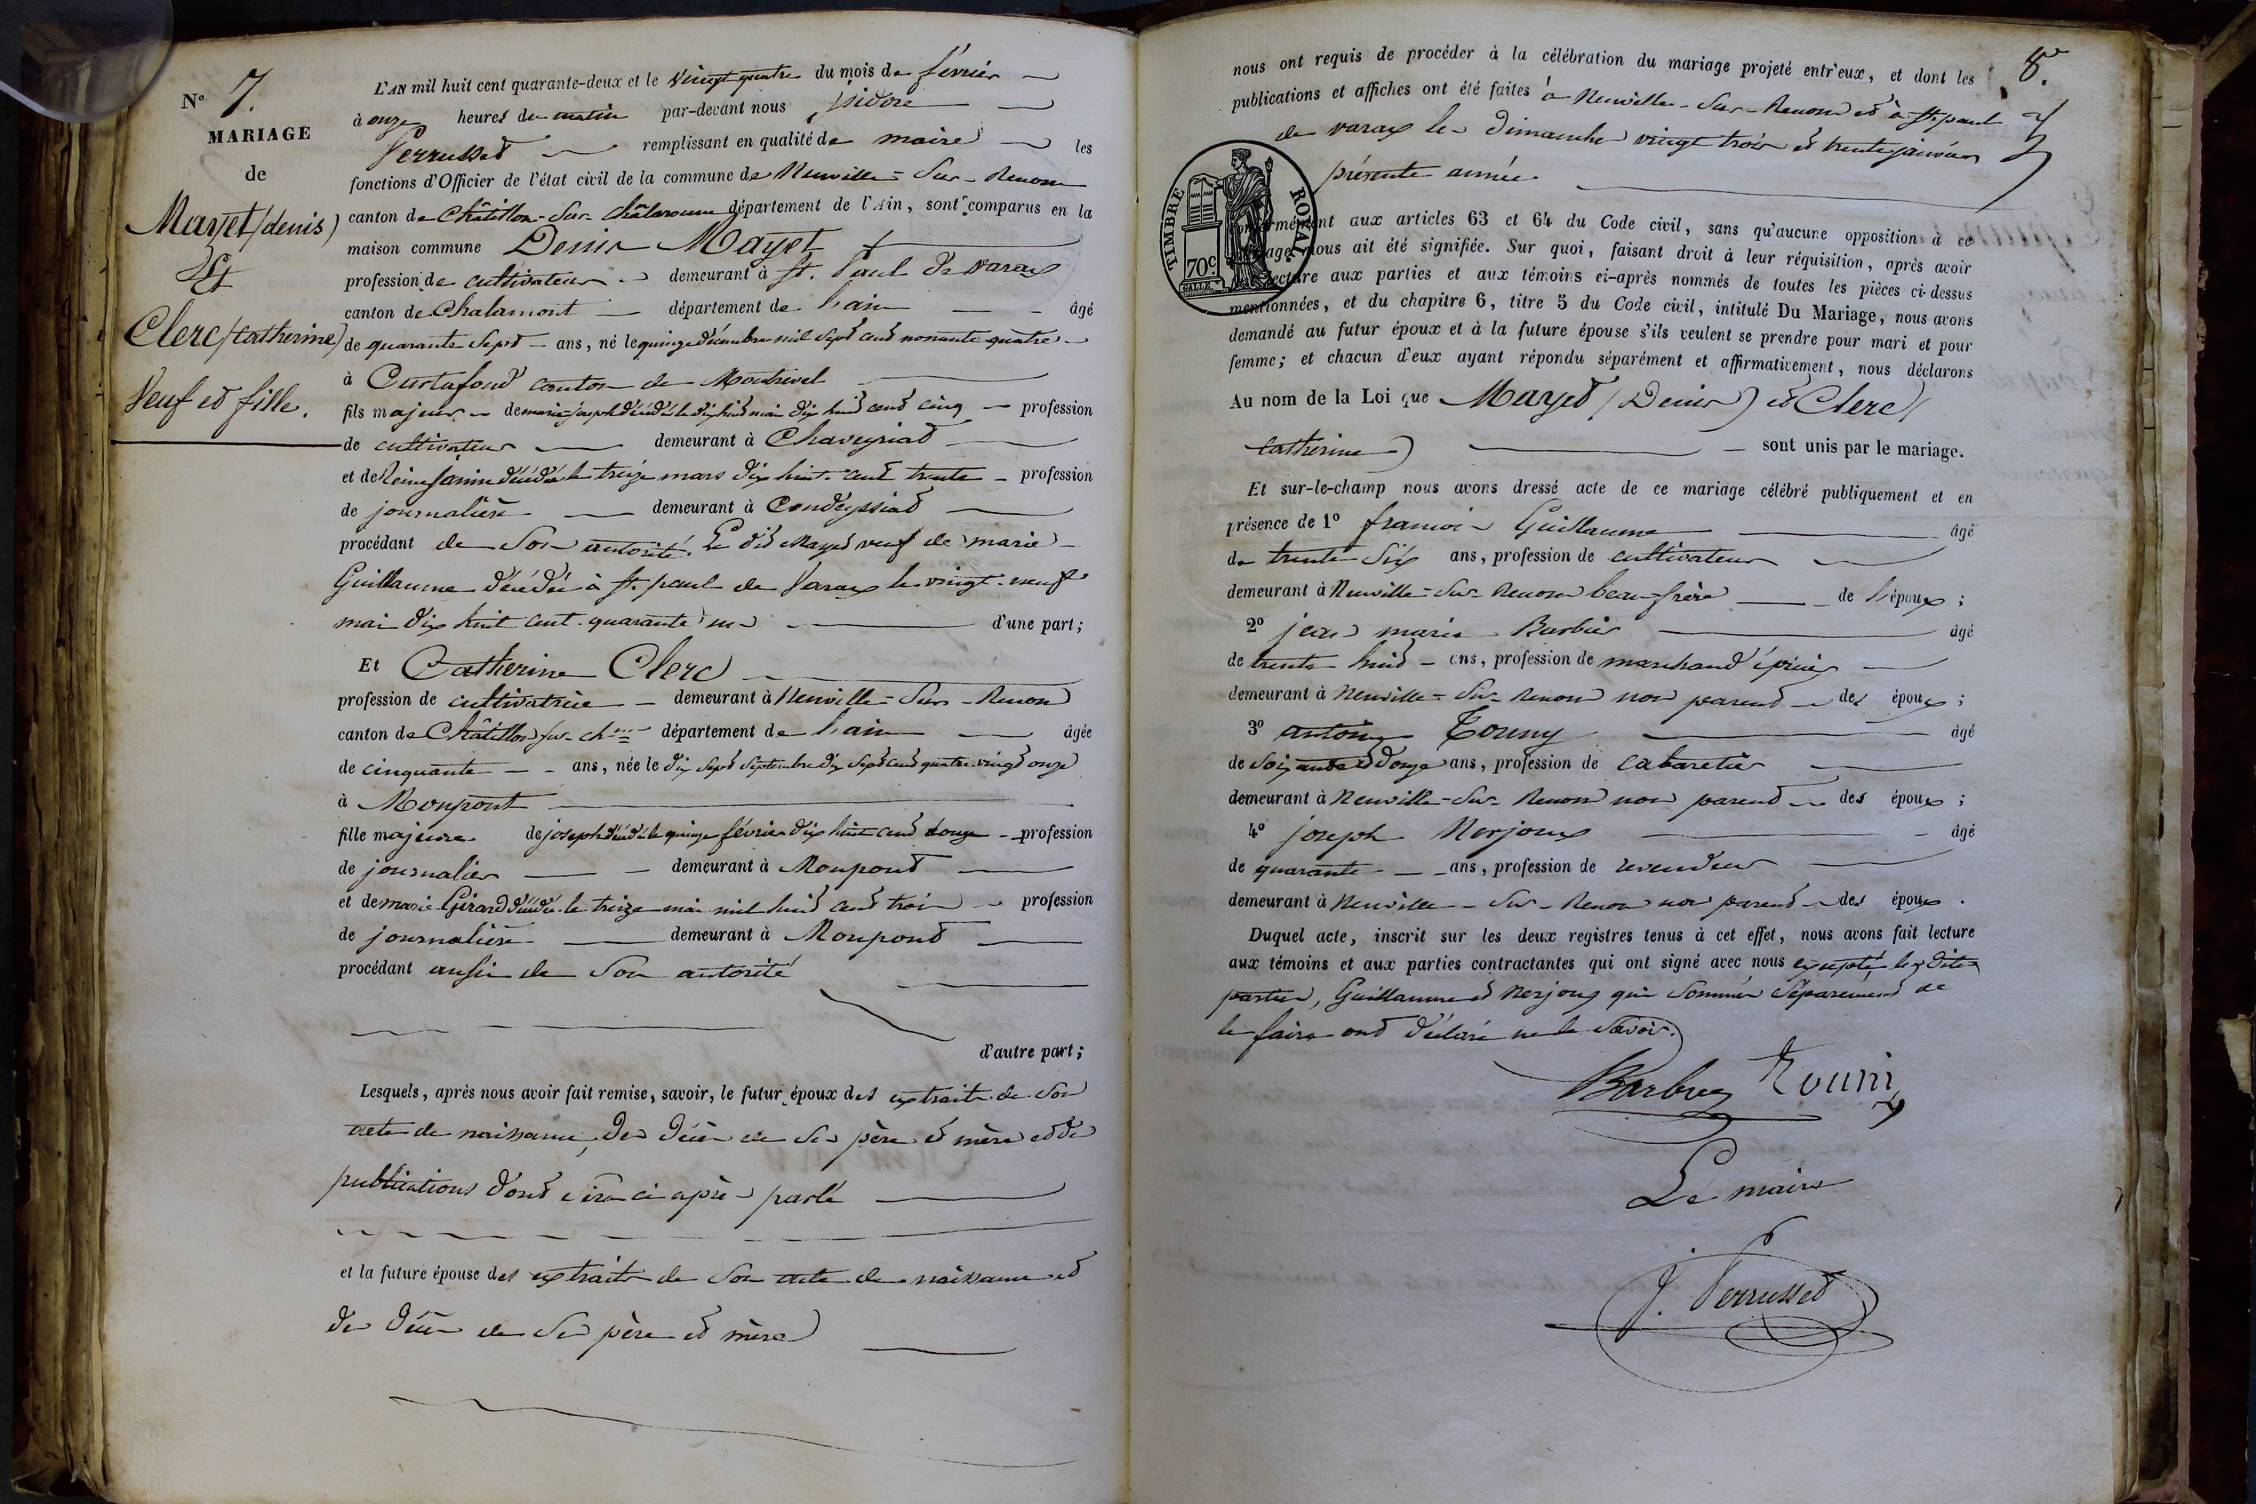 N° 7.
MARIAGE
de
Mayet (denis)
Et
Clerc (Catherine)
Veuf et fille.
L'AN mil huit cent quarante-deux et le vingt quatre du mois de février
à onze heures du matin par-devant nous isidore
Perrusset remplissant en qualité de maire les
fonctions d'Officier de l'état civil de la commune de Neuville-Sur-Renom
canton de Châtillon-Sur-Châlaronne département de l'Ain, sont comparus en la
maison commune Denis Mayet
profession de cultivateur demeurant à St. Paul de Varax
canton de Chalamont département de L'ain âgé
de quarante Sept ans, né le quinze décembre mil sept cent nonante quatre
à Curtafond canton de Montrevel
fils majeur de marie joseph décédé le dix huit mai dix huit cent cinq profession
de cultivateur demeurant à Chaveyriat
et de Reine décédée le treize mars dix huit cent trente profession
de journalière demeurant à Condeyssiat
procédant de Son autorité. Le dit Mayet veuf de marie
Guillaume décédée à St. paul de Varax le vingt-neuf
mai dix huit cent quarante un d'une part;
Et Catherine Clerc
profession de cultivatrice demeurant à Neuville-Sur-Renom
canton de Châtillon sur Ch.nne département de L'ain âgée
de cinquante ans, née le dix sept Septembre dix Sept cent quatre vingt onze
à Monpont
fille majeure de joseph décédé le quinze février dix huit cent douze profession
de journalier demeurant à Monpont
et de marie Girard décédée le treize mai mil huit cent trois profession
de journalière demeurant à Monpont
procédant aussi de Son autorité
d'autre part;
Lesquels, après nous avoir fait remise, savoir, le futur époux des extraits de Son
acte de naissance, de décès de Ses père et mère et de
publications dont il sera ci après parlé
et la future épouse des extraits de Son acte de naissance et
de décès de Ses père et mère
8.
nous ont requis de procéder à la célébration du mariage projeté entr'eux, et dont les
publications et affiches ont été faites à Neuville-Sur-Renom et à St. paul
de varax les dimanche vingt trois et trente janvier
présente année.
TIMBRE ROYAL.
70c.
conformément aux articles 63 et 64 du Code civil, sans qu'aucune opposition à ce
mariage nous ait été signifiée. Sur quoi, faisant droit à leur réquisition, après avoir
lecture aux parties et aux témoins ci-après nommés de toutes les pièces ci-dessus
mentionnées, et du chapitre 6, titre 5 du Code civil, intitulé Du Mariage, nous avons
demandé au futur époux et à la future épouse s'ils veulent se prendre pour mari et pour
femme; et chacun d'eux ayant répondu séparément et affirmativement, nous déclarons
Au nom de la Loi que Mayet (Denis) et Clerc (
Catherine) sont unis par le mariage.
Et sur-le-champ nous avons dressé acte de ce mariage célébré publiquement et en
présence de 1° francois Guillaume âgé
de trente Six ans, profession de cultivateur
demeurant à Neuville-Sur-Renom beau-frère de l'époux;
2° jean marie Barbier âgé
de trente huit ans, profession de marchand épicier
demeurant à Neuville-Sur-Renom non parent des époux;
3° antoine Touny âgé
de Soixante et douze ans, profession de Cabaretier
demeurant à Neuville-Sur-Renom non parent des époux;
4° joseph Nerjoux âgé
de quarante ans, profession de revendeur
demeurant à Neuville-Sur-Renom non parent des époux.
Duquel acte, inscrit sur les deux registres tenus à cet effet, nous avons fait lecture
aux témoins et aux parties contractantes qui ont signé avec nous excepté les dites
parties, Guillaume et Nerjoux qui Sommés Séparément de
le faire ont déclaré ne le Savoir.
Barbier Touni
Le maire
J. Perrusset